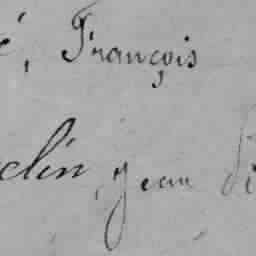 é, François
clin, jean